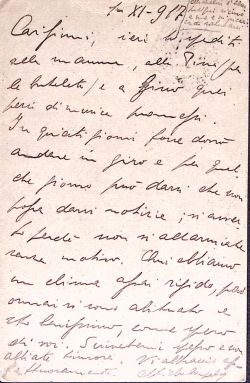 1 XI - 917
Carissimi, ieri spedii
alla mamma, alla Pine (per
le ) e a Gino quei
pezzi di musica promessi.
In questi giorni forse dovrò
andare in giro e per qual
che giorno può darsi che non
possa darvi notizie; vi avver
to perché non vi allarmiate
senza motivo. Qui abbiamo
un clima assai rigido, però
ormai vi sono abituato e
sto benissimo, come spero
di voi. Scrivetemi spesso e non
abbiate timore. Vi abbraccio
affettuosamente.